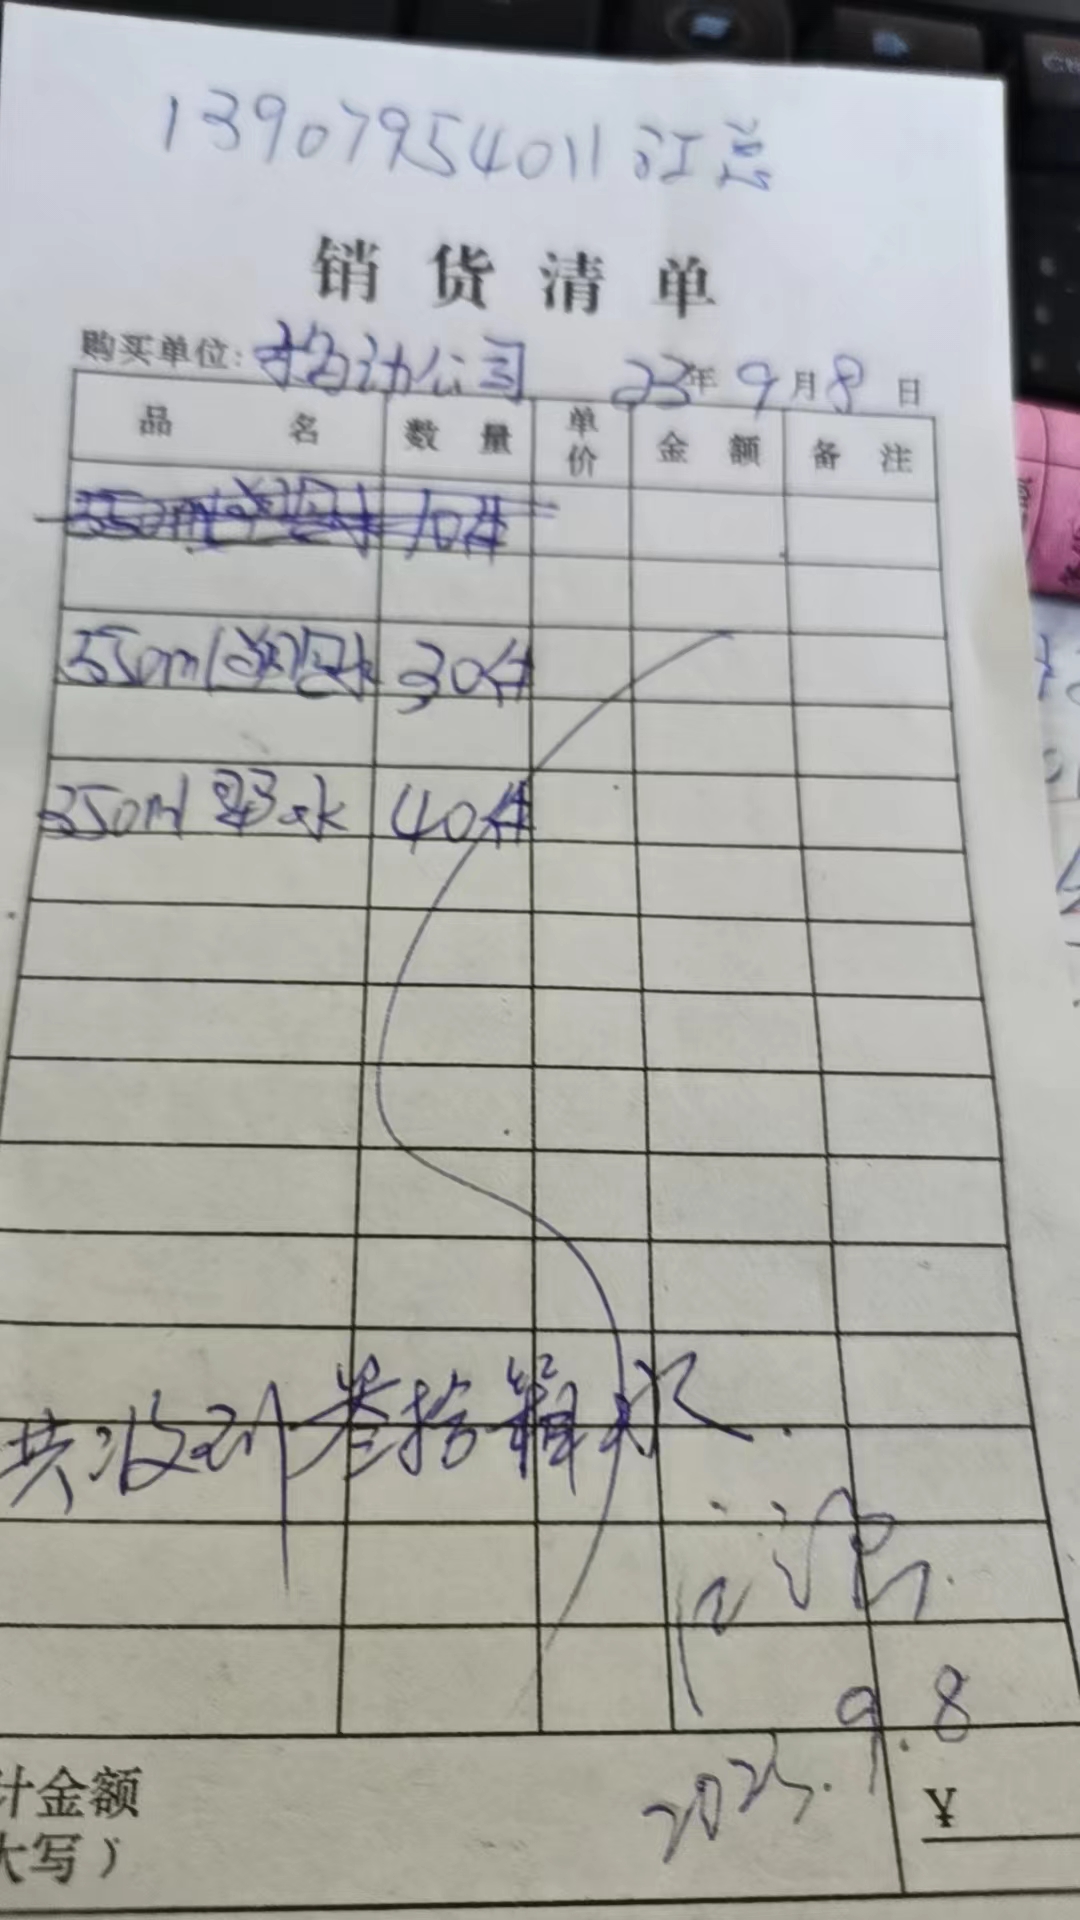 13907954011 江总
销货清单
购买单位: 公司 23年9月8日
品名 数量 单价 金额 备注
550ml 水 10件
550ml 水 30件
350ml 水 40件
共收到叁拾箱水.
9.8
2023.
计金额
大写) ¥